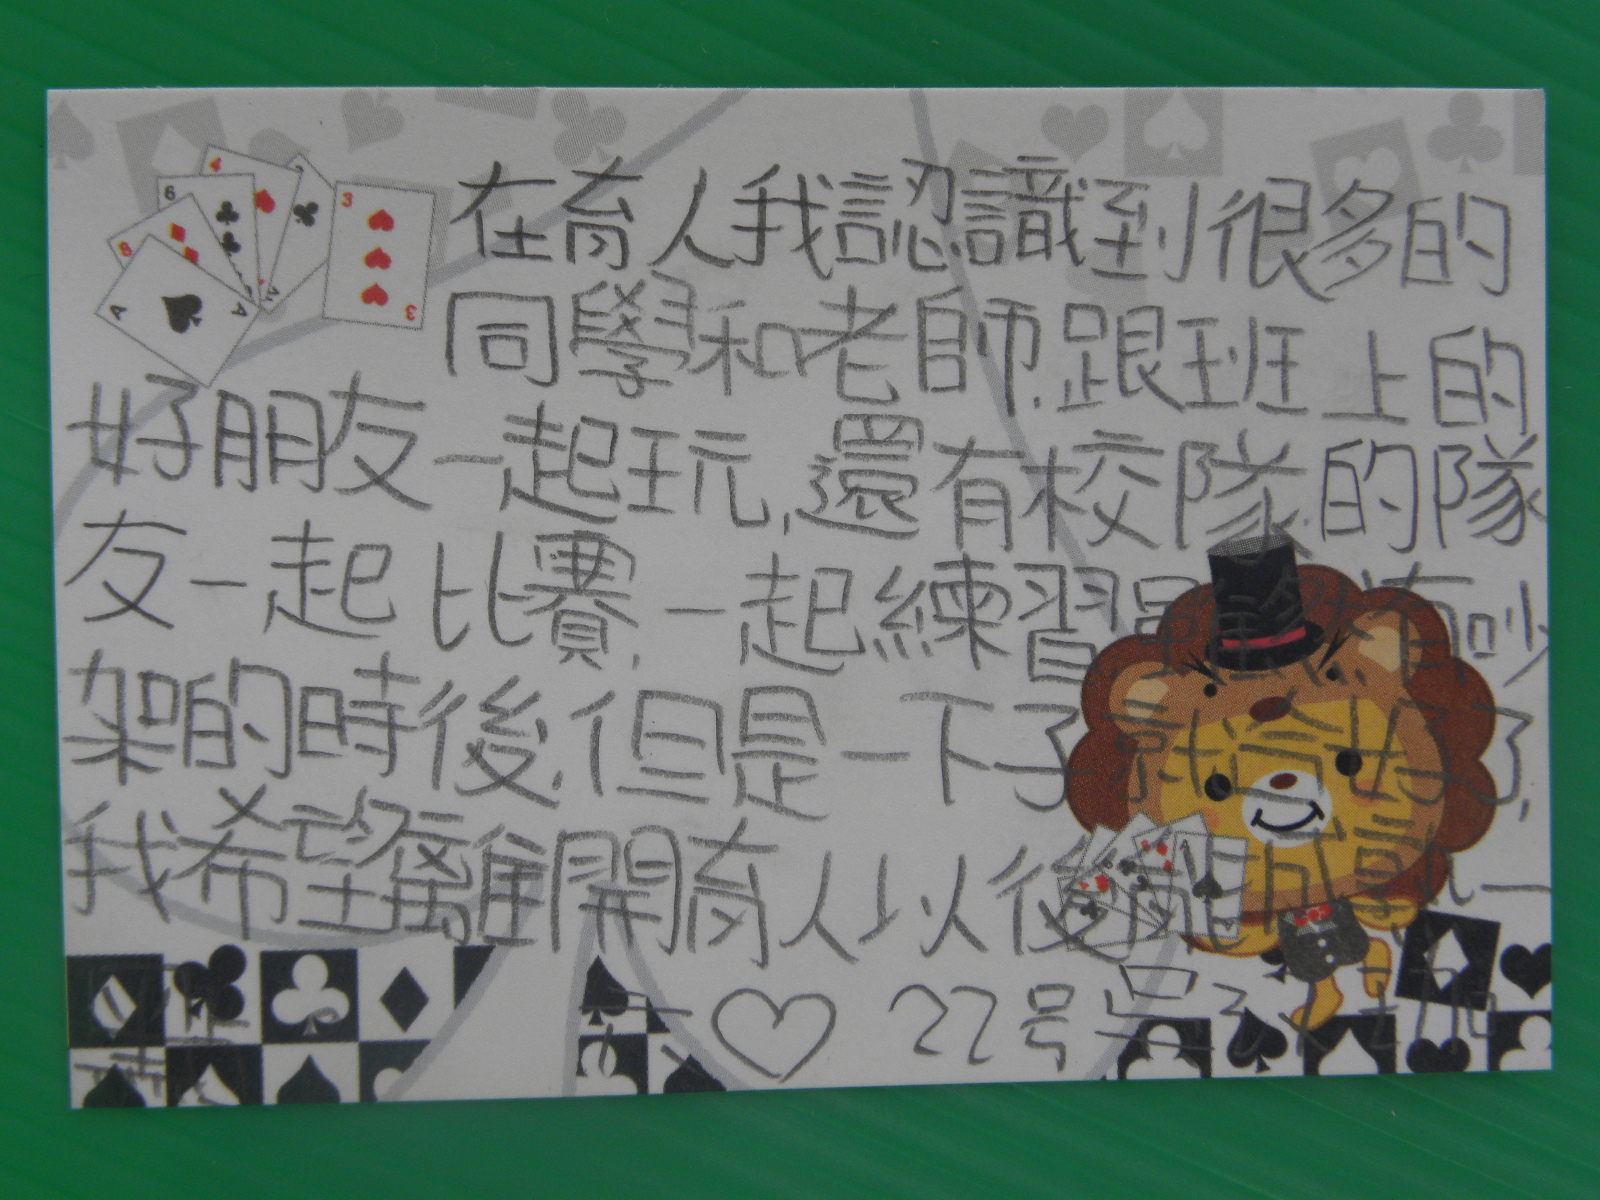 在育人我認識到很多的
同學和老師,跟班上的
好朋友一起玩,還有校隊的隊
友一起比賽,一起練習雖然有吵
架的時後,但是一下子就會好了,
我希望離開育人以後能成為一
22号